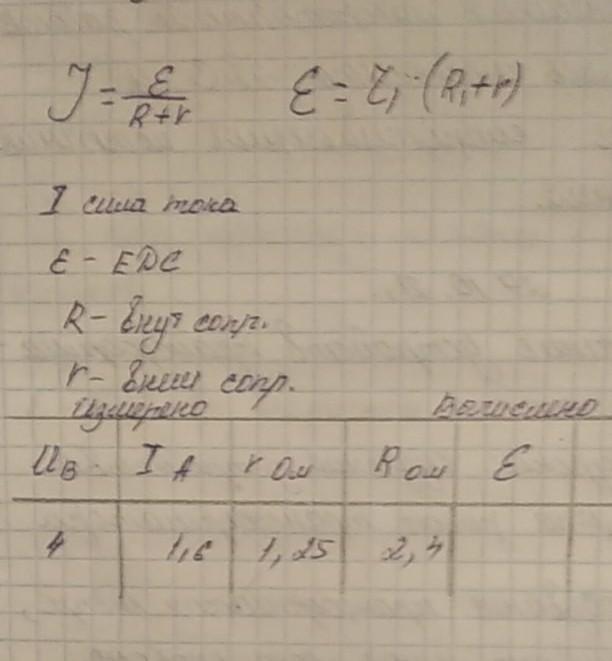 J = ε / R+r    ε = I₁·(R₁+r)
I сила тока
ε - EDC
R - Внут сопр.
r - внеш сопр.
Измерено    Вычислено
U В    I А    r Ом    R Ом    ε
4    1,6    1,25    2,4